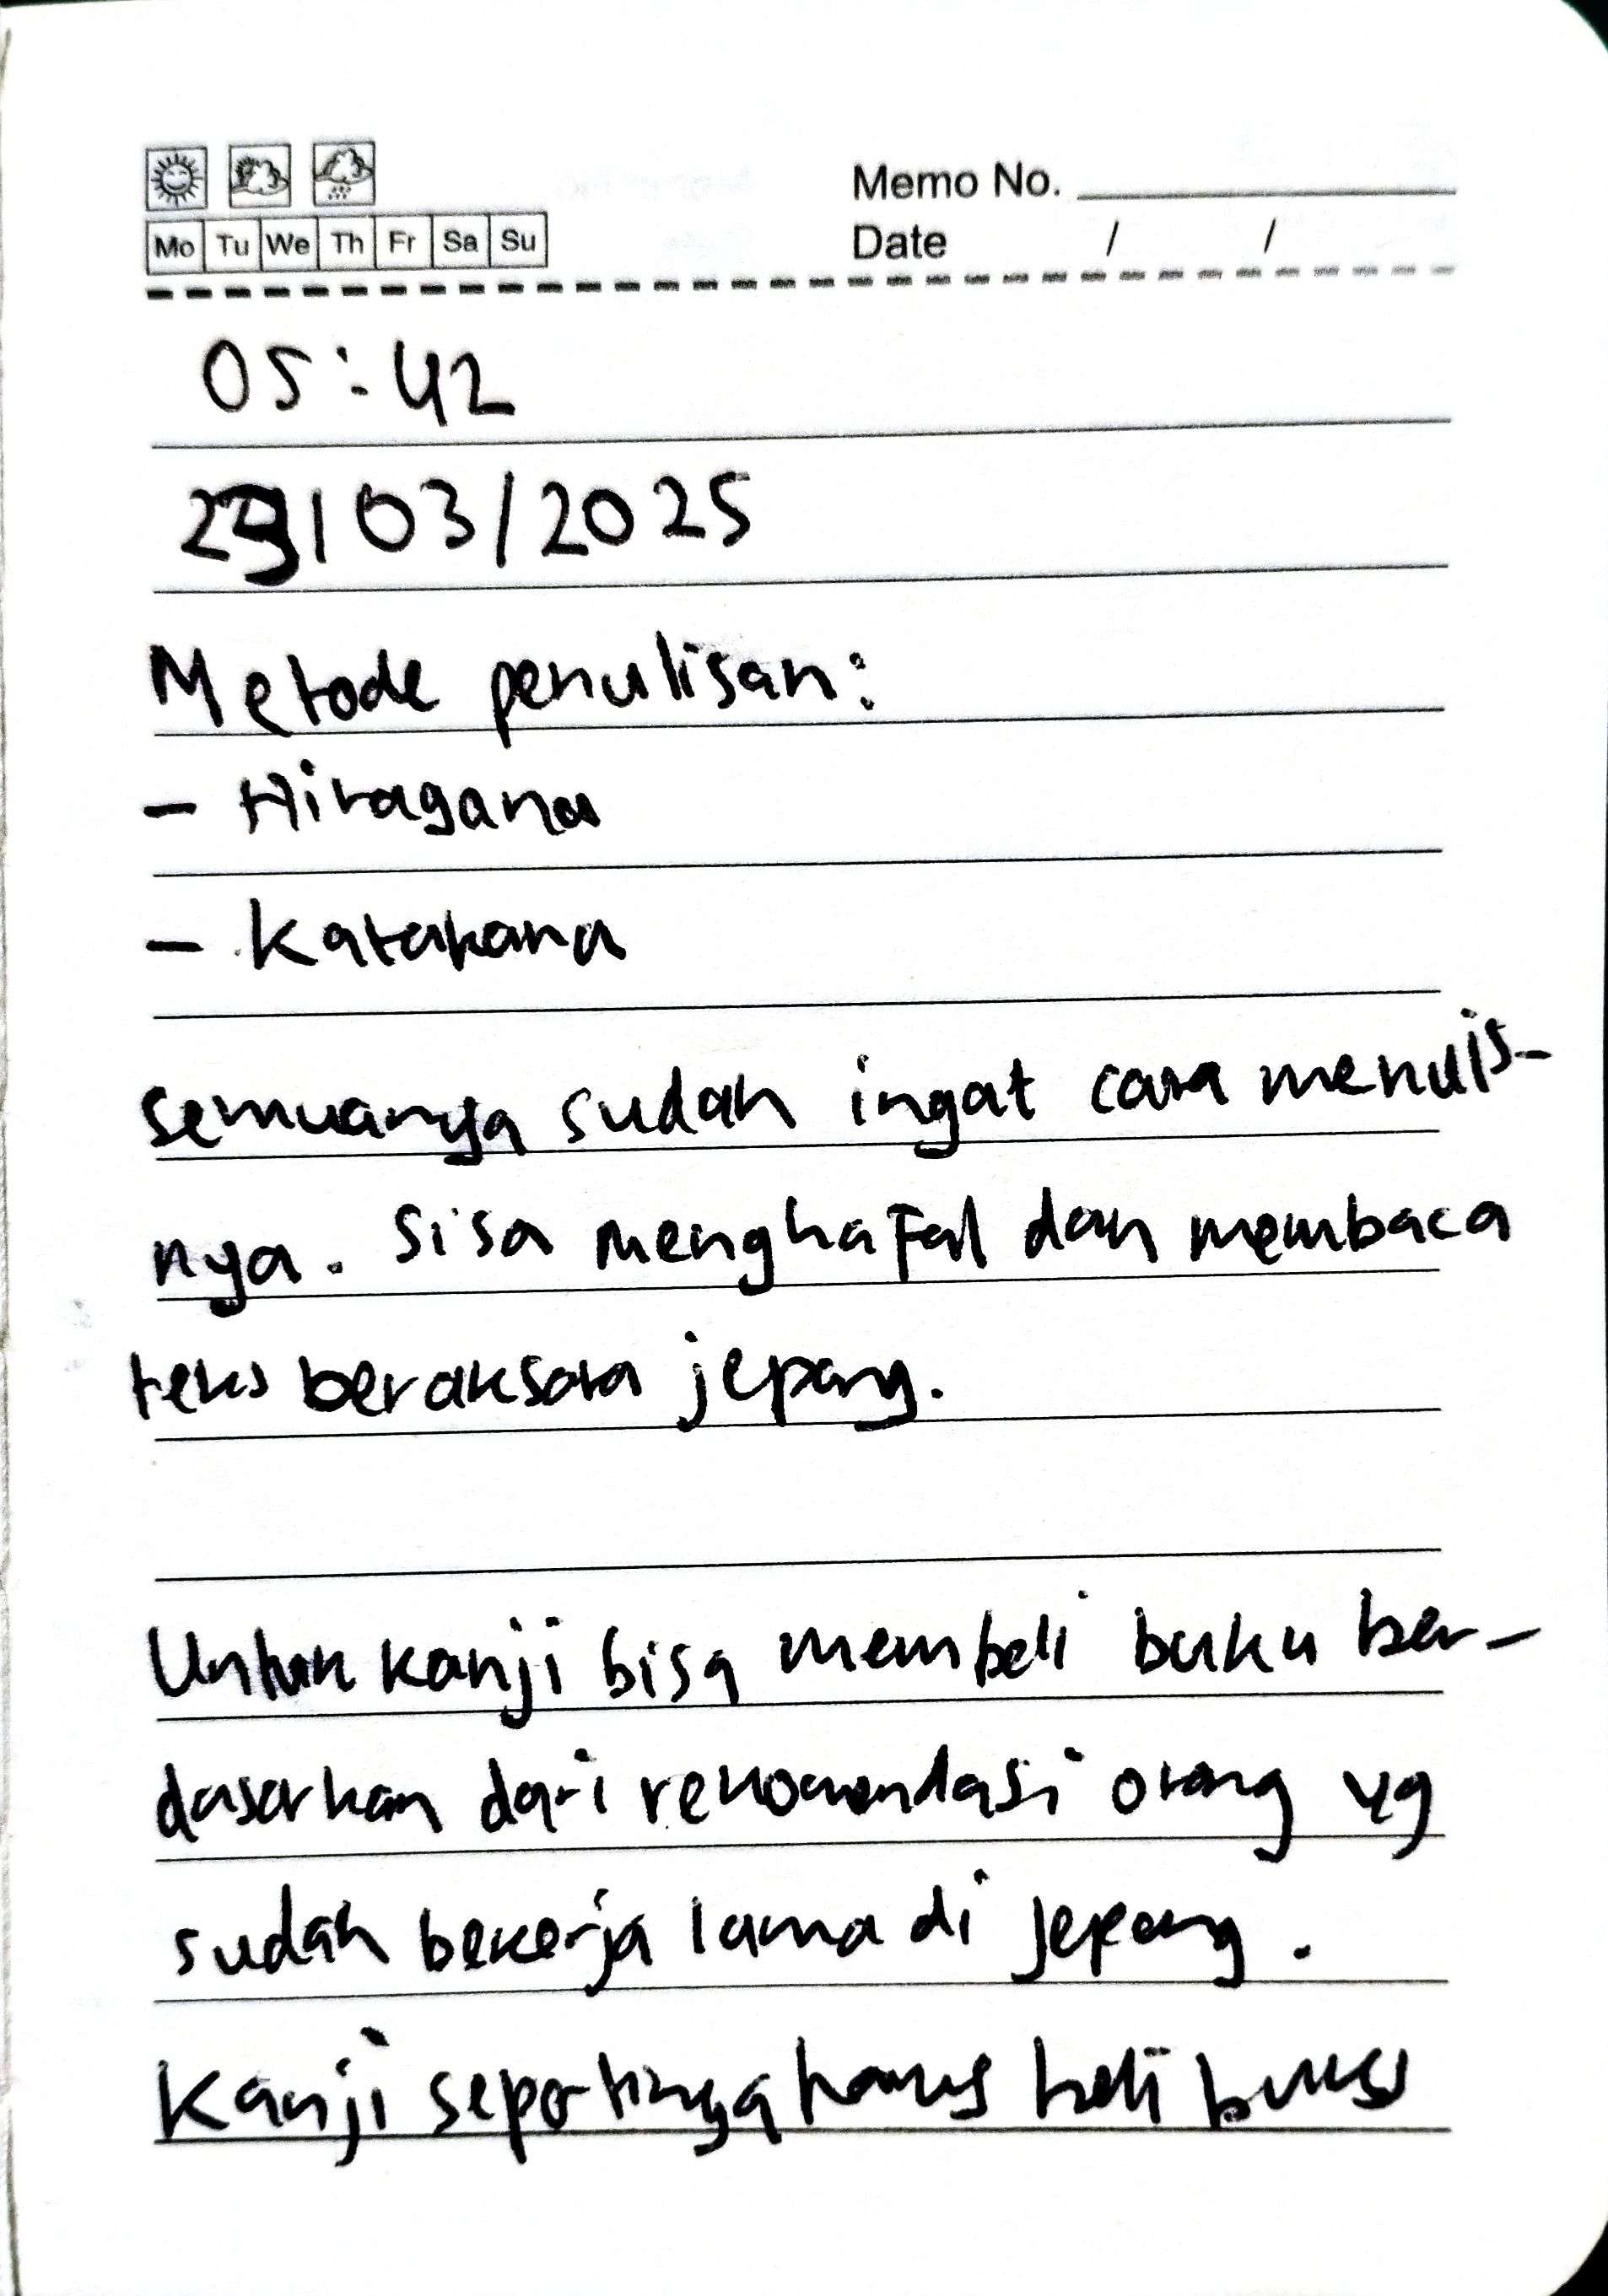 Memo No.
Mo Tu We Th Fr Sa Su
Date / /
05:42
29/03/2025
Metode penulisan:
- Hiragana
- Katakana
semuanya sudah ingat cara menulis-
nya. Sisa menghafal dan membaca
teks beraksara jepang.
Untuk kanji bisa membeli buku ber-
dasarkan dari rekomendasi orang yg
sudah bekerja lama di Jepang.
Kanji sepertinya harus beli buku